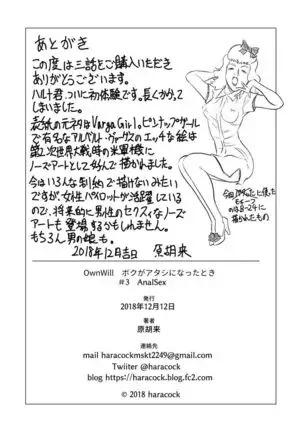 あとがき
この度は三話をご購入いただき
ありがとうございます。
ハルナ君、ついに初体験です。長くかかって
しまいました。
表紙の元ネタはVarga Girl。ピンナップガール
で有名なアルベルト・ヴァーガスのエッチな絵は
第2次世界大戦時の米軍機に
ノーズアートとして
描かれました。
今はいろんな制約で描けないみたい
ですが、女性パイロットが活躍している
ので、将来的に男性のセクスィなノーズ
アートも登場するかもしれません。
もちろん男の娘も。
2018年12月吉日 原胡来
今回
使った
モチーフ
のはB-24に
描かれたもの
OwnWill ボクがアタシになったとき
#3 AnalSex
発行
2018年12月12日
著者
原胡来
連絡先
mail haracockmskt2249@gmail.com
Twiiter @haracock
blog https://haracock.blog.fc2.com
© 2018 haracock